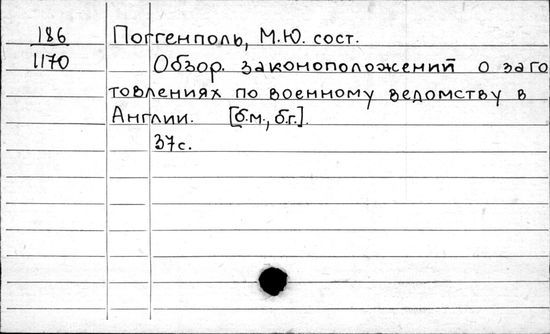 186 Поггенполь, М.Ю. сост.
1170 Обзор законоположений о заго
товлениях по военному ведомству в
Англии. [б.м., б.г.].
37с.